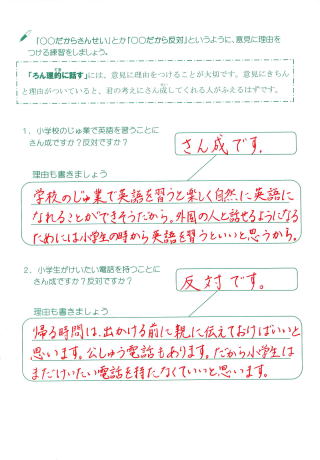 「○○だからさんせい」とか「○○だから反対」というように、意見に理由を
つける練習をしましょう。
「ろん理的に話す」には、意見に理由をつけることが大切です。意見にきちん
と理由がついていると、君の考えにさん成してくれる人がふえるはずです。
1．小学校のじゅ業で英語を習うことに
さん成ですか？反対ですか？
さん成です。
理由も書きましょう
学校のじゅ業で英語を習うと楽しく自然に英語に
なれることができそうだから。外国の人と話せるようになる
ためには小学生の時から英語を習うといいと思うから。
2．小学生がけいたい電話を持つことに
さん成ですか？反対ですか？
反対です。
理由も書きましょう
帰る時間は、出かける前に親に伝えておけばいいと
思います。公しゅう電話もあります。だから小学生は
まだけいたい電話を持たなくていいと思います。